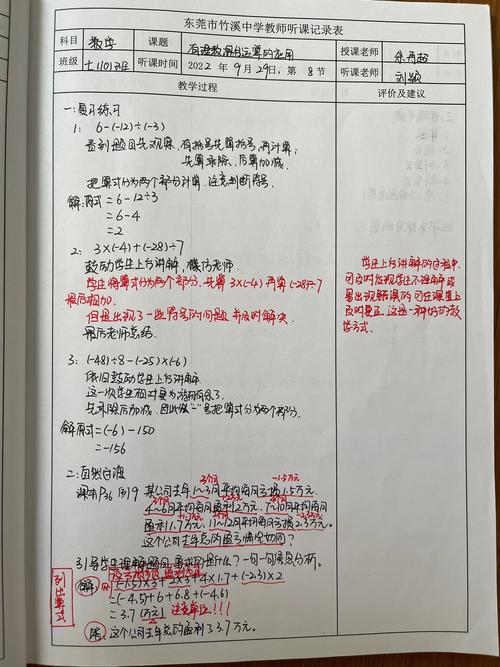 东莞市竹溪中学教师听课记录表
科目 数学 课题 有理数混合运算的应用 授课老师
班级 七(10)班 听课时间 2022 年 9 月 29 日，第 8 节 听课老师 刘
教学过程 评价及建议
一：复习练习
1： 6-(-12)÷(-3)
看到题目先观察，有括号先算括号，再计算；
先算乘除，后算加减。
把算式分为两个部分计算，注意判断符号。
解：原式=6-12÷3
=6-4
=2
2： 3×(-4)+(-28)÷7
鼓励学生上台讲解，模仿老师。
学生将算式分为两个部分，先算3×(-4)再算(-28)÷7
最后相加.
但是出现了一些符号的问题 并及时解决
最后老师总结.
学生上台讲解的过程中
可及时发现学生不理解或
易出现错误的 可在课堂上
及时更正 这是一种好的教
学方式.
3： (-48)÷8-(-25)×(-6)
依旧鼓励学生上台讲解
这一次学生相对更为
先乘除后加减，因此做“-”号把算式分为两个部分.
解原式=(-6)-150
=-156
二：自然过渡
课本P36 例9 某公司去年1~3月平均每月亏损1.5万元，
4~6月平均每月盈利2万元，7~10月平均每月
盈利1.7万元，11~12月平均每月亏损2.3万元。
这个公司去年总的盈亏情况如何？
3个月 -1.5万元
3个月
引导学生理解题目 一句一句慢慢分析。
列出算式
解： (-1.5)×3+2×3+4×1.7+(-2.3)×2
=(-4.5)+6+6.8+(-4.6)
=3.7 (万元) 注意单位！！！
答：这个公司去年总的盈利3.7万元。